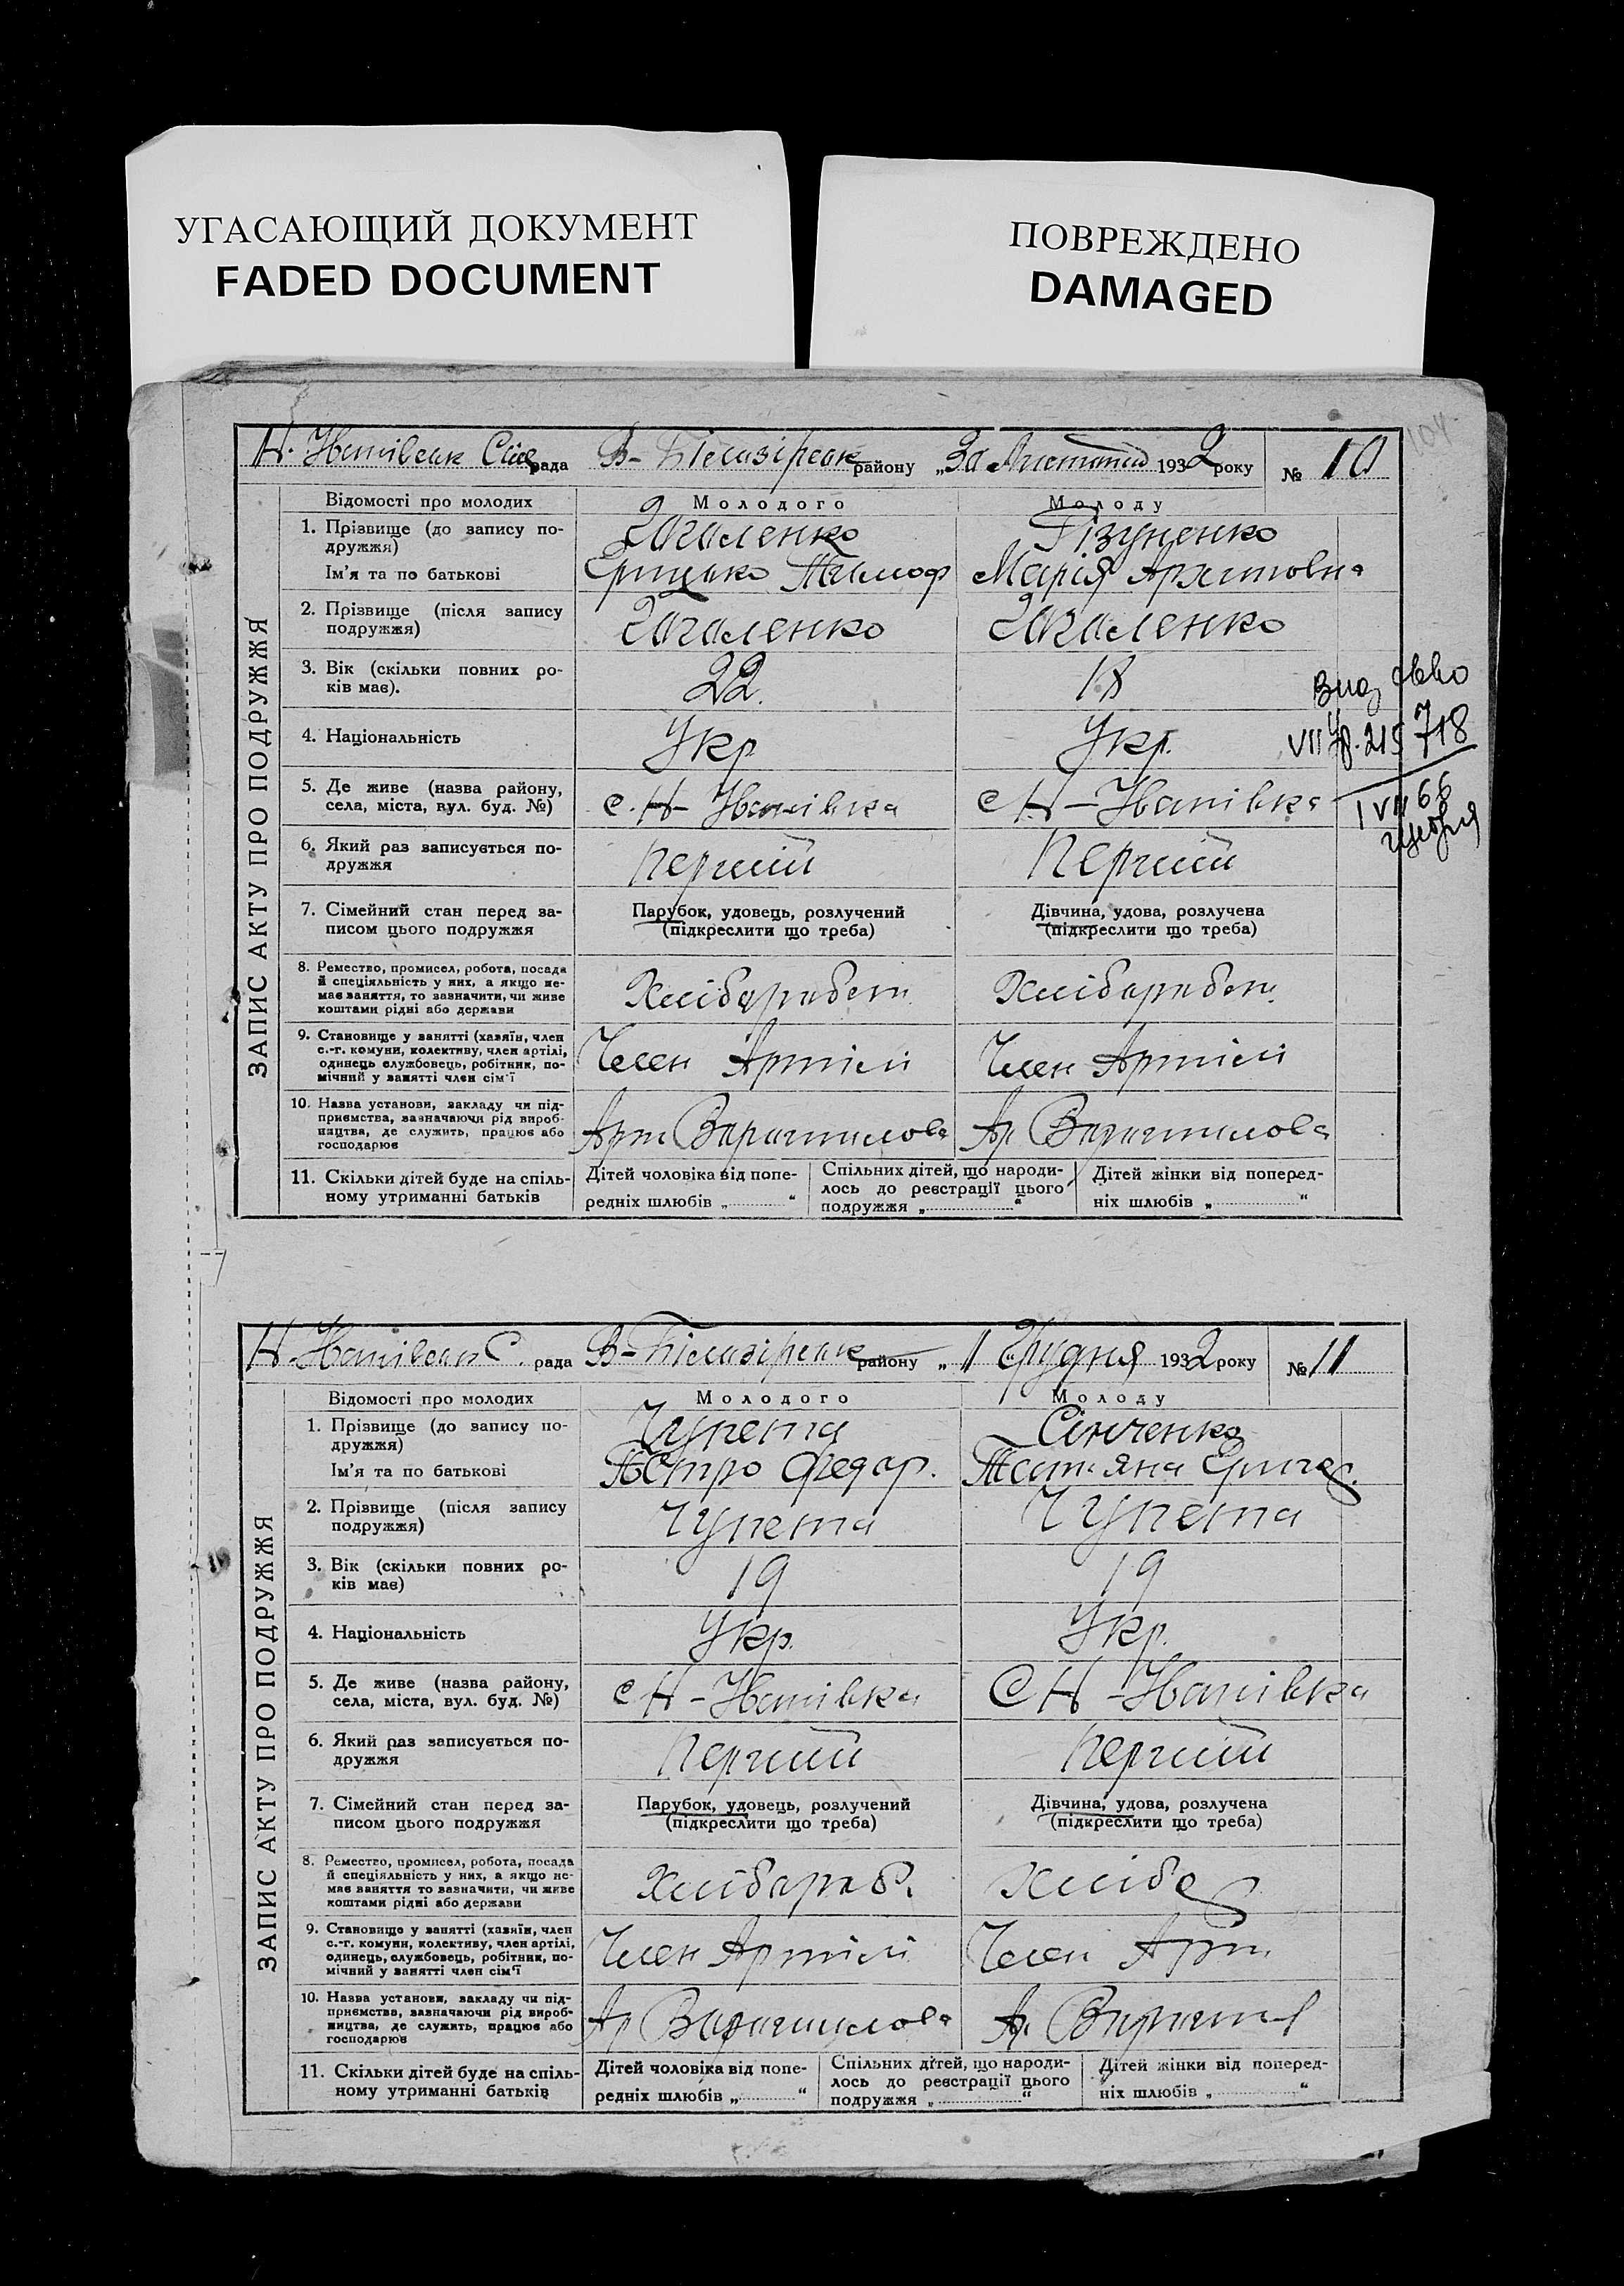 УГАСАЮЩИЙ ДОКУМЕНТ
FADED DOCUMENT
ПОВРЕЖДЕНО
DAMAGED
104
ЗАПИС АКТУ ПРО ПОДРУЖЖЯ
рада В- Білазірськ району „30 Листопад 1932 року № 10
Відомості про молодих Молодого Молоду
1. Прізвище (до запису по-
дружжя)
Загаленко
Ім'я та по батькові Грицько Тимоф Марія Архиповна
2. Прізвище (після запису
подружжя)
Загаленко Загаленко
3. Вік (скільки повних ро-
ків має).
22. 18
4. Національність Укр Укр.
5. Де живе (назва району,
села, міста, вул. буд. №)
с. Н- Іванівка с Н-Іванівка
6. Який раз записується по-
дружжя
Перший Перший
7. Сімейний стан перед за-
писом цього подружжя
Парубок, удовець, розлучений
(підкреслити що треба)
Дівчина, удова, розлучена
(підкреслити що треба)
8. Ремество, промисел, робота, посада
й спеціяльність у них, а якщо не-
має заняття, то зазначити, чи живе
коштами рідні або держави
Хлібороб Хлібороб
9. Становище у занятті (хазяїн, член
с.-г. комуни, колективу, член артілі,
одинець службовець, робітник, по-
мічний у занятті член сім'ї
Член Артілі Член Артілі
10. Назва установи, закладу чи під-
приємства, зазначаючи рід вироб-
ництва, де служить, працює або
господарює
Арт Ворошилова Ар. Ворошилова
11. Скільки дітей буде на спіль-
ному утриманні батьків
Дітей чоловіка від попе-
редніх шлюбів „ “
Спільних дітей, що народи-
лось до реєстрації цього
подружжя „ “
Дітей жінки від поперед-
ніх шлюбів „ “
718
ЗАПИС АКТУ ПРО ПОДРУЖЖЯ
рада В- Білазірськ району „1 Грудня 1932 року № 11
Відомості про молодих Молодого Молоду
1. Прізвище (до запису по-
дружжя)
Чупета Сінченко
Ім'я та по батькові Петро Федор. Татьяна Григор.
2. Прізвище (після запису
подружжя)
Чупета Чупета
3. Вік (скільки повних ро-
ків має)
19 19
4. Національність Укр. Укр.
5. Де живе (назва району,
села, міста, вул. буд. №)
с Н-Іванівка С Н-Іванівка
6. Який раз записується по-
дружжя
Перший Перший
7. Сімейний стан перед за-
писом цього подружжя
Парубок, удовець, розлучений
(підкреслити що треба)
Дівчина, удова, розлучена
(підкреслити що треба)
8. Ремество, промисел, робота, посада
й спеціяльність у них, а якщо не-
має заняття то зазначити, чи живе
коштами рідні або держави
Хлібороб. Хлібо
9. Становище у занятті (хазяїн, член
с.-г. комуни, колективу, член артілі,
одинець, службовець, робітник, по-
мічний у занятті член сім'ї
Член Артілі Член Арт
10. Назва установи, закладу чи під-
приємства, зазначаючи рід вироб-
ництва, де служить, працює або
господарює
Ар Ворошилова Ар.
11. Скільки дітей буде на спіль-
ному утриманні батьків
Дітей чоловіка від попе-
редніх шлюбів „ “
Спільних дітей, що народи-
лось до реєстрації цього
подружжя „ “
Дітей жінки від поперед-
ніх шлюбів „ “